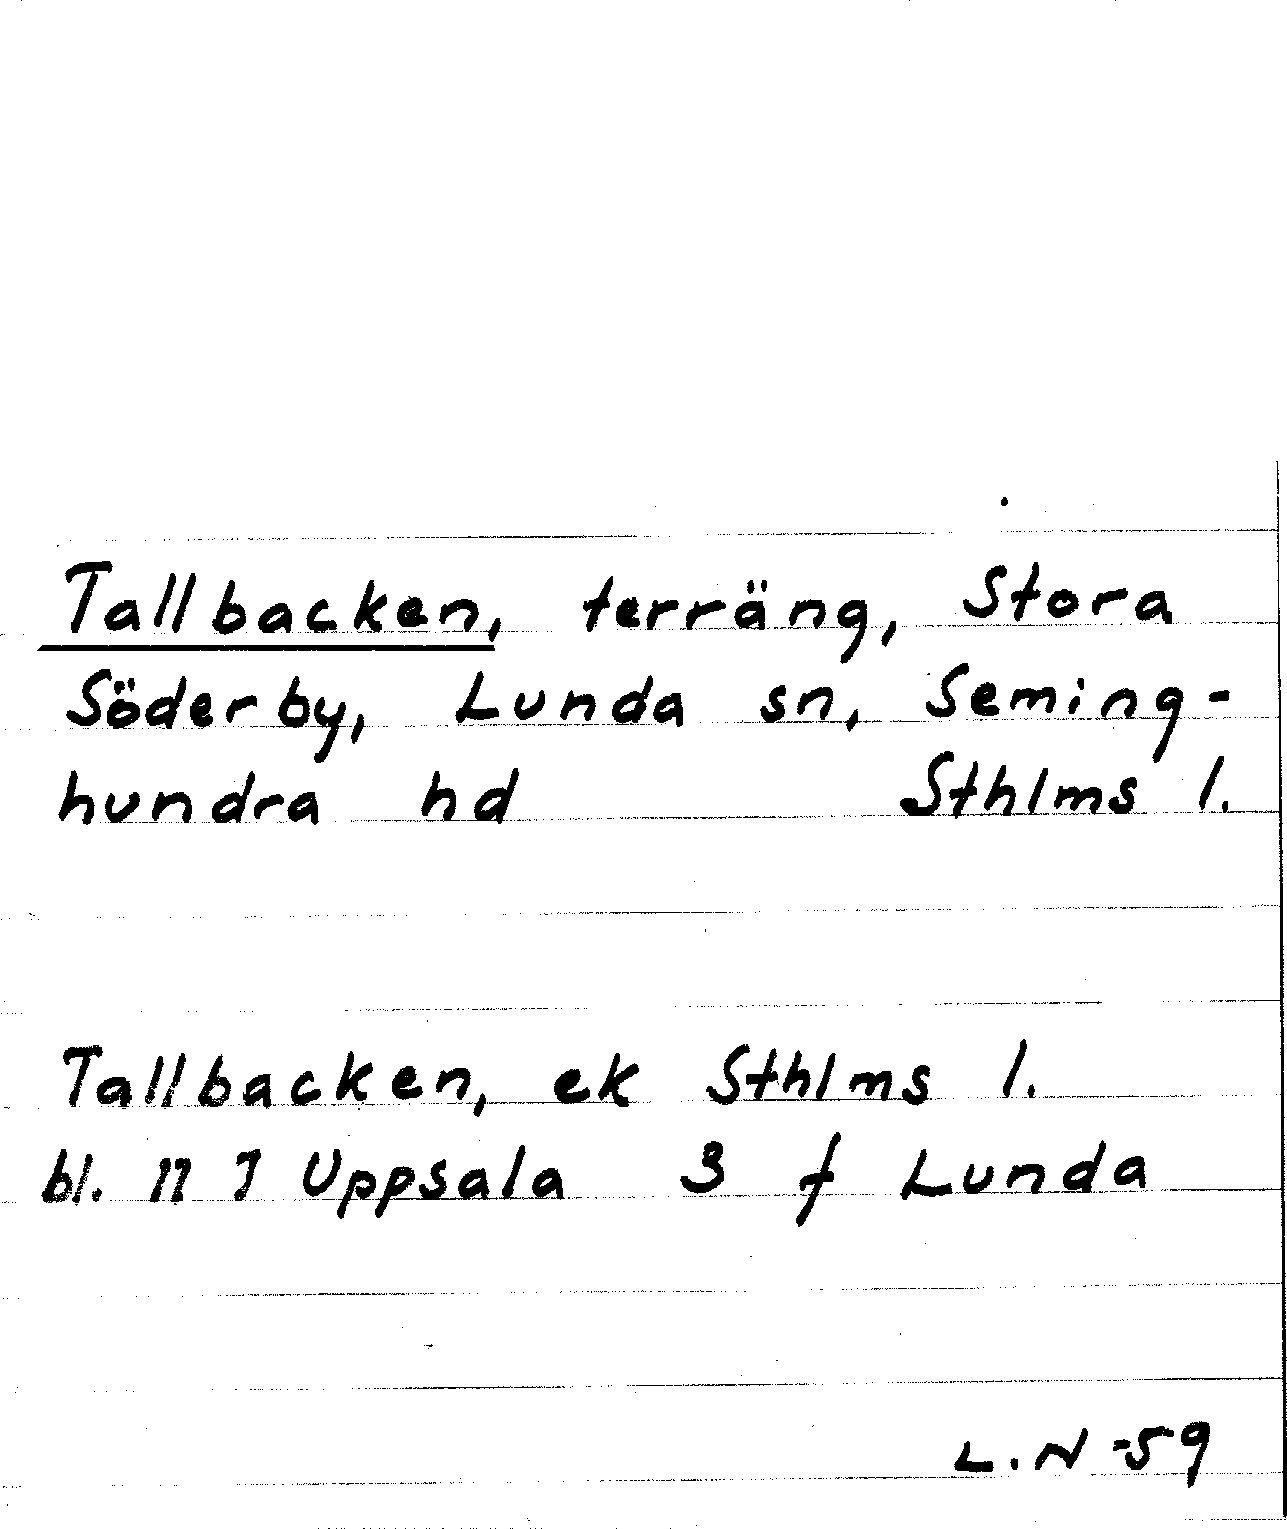 Tallbacken, terräng, Stora
Söderby, Lunda sn, Seming-
hundra hd Sthlms l.
Tallbacken, ek Sthlms l.
bl. 11 I Uppsala 3 f Lunda
L.N -59